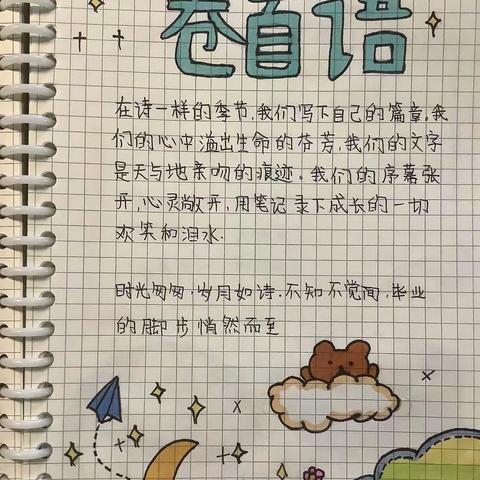 卷首语
在诗一样的季节,我们写下自己的篇章,我
们的心中溢出生命的芬芳,我们的文字
是天与地亲吻的痕迹。我们的序幕张
开,心灵敞开,用笔记录下成长的一切
欢笑和泪水.
时光匆匆,岁月如诗.不知不觉间,毕业
的脚步悄然而至